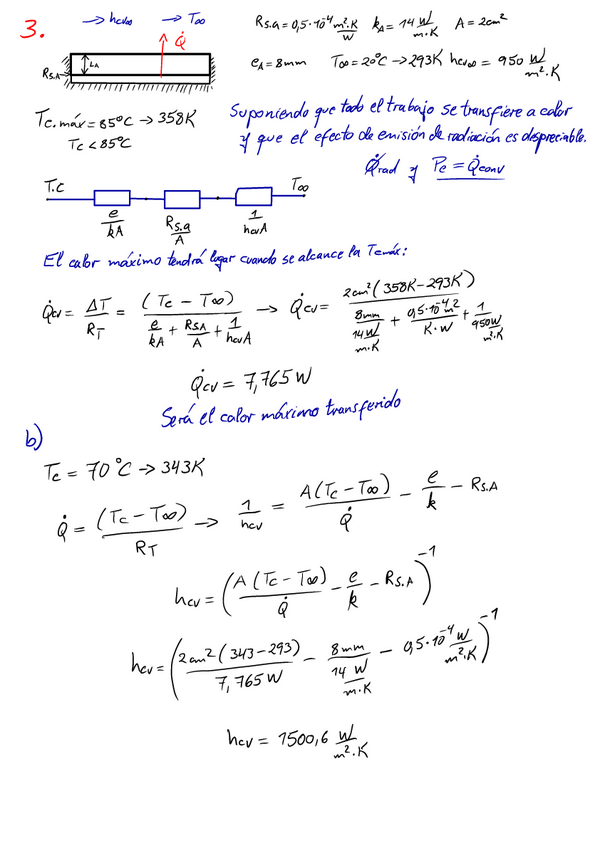 3.
→ hcv∞ → T∞
Rs.a = 0,5·10⁻⁴ m²·K/W kA = 14 W/m·K A = 2cm²
Q̇
LA
Rs.A
eA = 8mm T∞ = 20°C → 293K hcv∞ = 950 W/m²·K
Tc.máx = 85°C → 358K
Tc < 85°C
Suponiendo que todo el trabajo se transfiere a calor
y que el efecto de emisión de radiación es despreciable.
Q̇rad y Pe = Q̇conv
T.C T∞
e/kA Rs.a/A 1/hcvA
El calor máximo tendrá lugar cuando se alcance la Tcmáx:
Q̇cv = ΔT/RT = (Tc - T∞)/(e/kA + RsA/A + 1/hcvA) → Q̇cv = 2cm²(358K - 293K)/(8mm/(14W/m·K) + 0,5·10⁻⁴m²/K·W + 1/(950W/m²·K))
Q̇cv = 7,765 W
Será el calor máximo transferido
b)
Tc = 70°C → 343K
Q̇ = (Tc - T∞)/RT → 1/hcv = A(Tc - T∞)/Q̇ - e/k - Rs.A
hcv = (A(Tc - T∞)/Q̇ - e/k - Rs.A)⁻¹
hcv = (2cm²(343 - 293)/7,765W - 8mm/(14 W/m·K) - 0,5·10⁻⁴ W/m²·K)⁻¹
hcv = 1500,6 W/m²·K